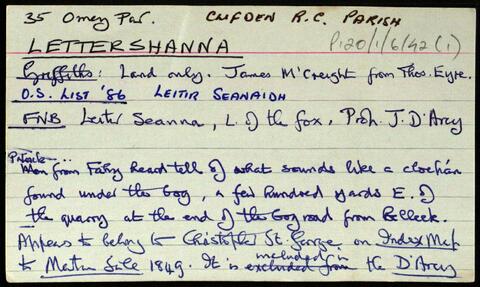 35 Omey Par. CLIFDEN R.C. PARISH
LETTERSHANNA P.20/1/6/42 (1)
Griffiths: Land only. James M'Creight from Thos. Eyre.
O.S. LIST '86 LEITIR SEANAIDH
FNB Leiter Seanna, L. of the fox, Proh. J. D'Arcy
Patrick...
Man from Fahy heard tell of what sounds like a clochán
found under the bog, a few hundred yards E. of
the quarry at the end of the bog road from Belleek.
Appears to belong to Christopher St. George. on Index Map
to Martin Sale 1849. It is excluded from included in the D'Arcy